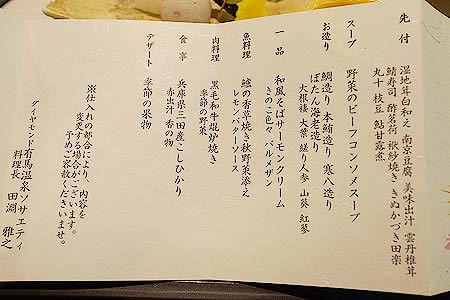 先付
湿地茸白和え 南京豆腐 美味出汁 雲丹椎茸
鯖寿司 酢茗荷 袱紗焼き きぬかづき田楽
丸十 枝豆 鮎甘露煮
スープ
野菜のビーフコンソメスープ
お造り
鯛造り 本鮪造り 寒八造り
ぼたん海老造り
大根褄 大葉 縒り人参 山葵 紅蓼
一品
和風そばサーモンクリーム
きのこ色々 パルメザン
魚料理
鱧の香草焼き秋野菜添え
レモンバターソース
肉料理
黒毛和牛焜炉焼き
季節の野菜
食事
兵庫県三田産こしひかり
赤出汁 香の物
デザート
季節の果物
※仕入れの都合により、内容を
変更する場合がございます。
予めご容赦くださいませ。
ダイヤモンド有馬温泉ソサエティ
料理長 田淵 雅之